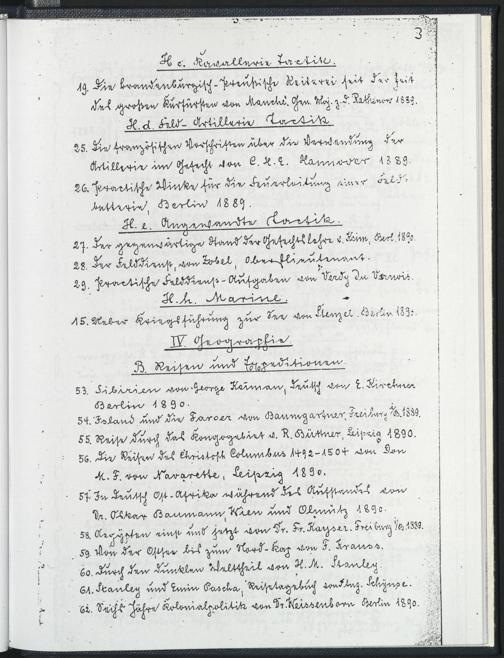 3
H c. Kavallerie Tactik.
19. Die brandenburgisch-Preußische Reiterei seit der Zeit
des großen Kurfürsten von Gen. Maj. z. D. Rathenow 1889.
H. d. Feld-Artillerie Tactik
25. Die französischen Vorschriften über die Verwendung der
Artillerie im Gefecht von C. H. E. Hannover 1889.
26. Practische Winke für die Feuerleitung einer Feld-
batterie, Berlin 1889.
H. e. Angewandte Tactik.
27. Der gegenwärtige Stand der Gefechtslehre v. Keim, Berl. 1890.
28. Der Felddienst, von Zobel, Oberstlieutenant.
29. Practische Felddienst-Aufgaben von Verdy du Vernois.
H. h. Marine.
15. Ueber Kriegsführung zur See von Stenzel. Berlin
IV Geographie
B. Reisen und Expeditionen.
53. Sibirien von George Kennan, Deutsch von E. Kirchner
Berlin 1890.
54. Island und die Faroer von Baumgartner, Freiburg i/B. 1889.
55. Reise durch das Kongogebiet v. R. Büttner, Leipzig 1890.
56. Die Reisen des Christoph Columbus 1492-1504 von Don
M. F. von Navarette, Leipzig 1890.
57. In Deutsch Ost-Afrika während des Aufstandes von
Dr. Oskar Baumann Wien und Olmütz 1890.
58. Aegypten einst und jetzt von Dr. Fr. Kayser. Freiburg i/B. 1889.
59. Von der Ostsee bis zum Nord-Kap von F. Krauss.
60. Durch den dunklen Welttheil von H. M. Stanley
61. Stanley und Emin Pascha, Reisetagebuch von Schynse.
62. Sechs Jahre Kolonialpolitik von Dr. Weissenborn Berlin 1890.